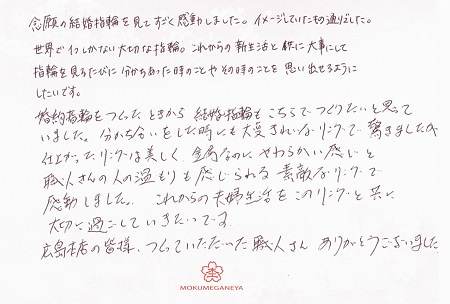 念願の結婚指輪を見てすごく感動しました。イメージしていたもの通りでした。
世界で1つしかない大切な指輪。これからの新生活と共に大事にして
指輪を見るたびに分かちあった時のことやその時のことを思い出せるように
したいです。
婚約指輪をつくったときから結婚指輪もこちらでつくりたいと思って
いました。分かち合いをした時にも大変きれいなリングで驚きましたが
仕上がったリングは美しく、金属なのにやわらかい感じと
職人さんの人の温もりも感じられる素敵なリングで
感動しました。これからの夫婦生活をこのリングと共に
大切に過ごしていきたいです。
広島本店の皆様、つくっていただいた職人さん ありがとうございました
MOKUMEGANEYA